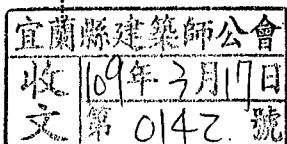 宜蘭縣建築師公會
收文
109年3月17日
第0142.號